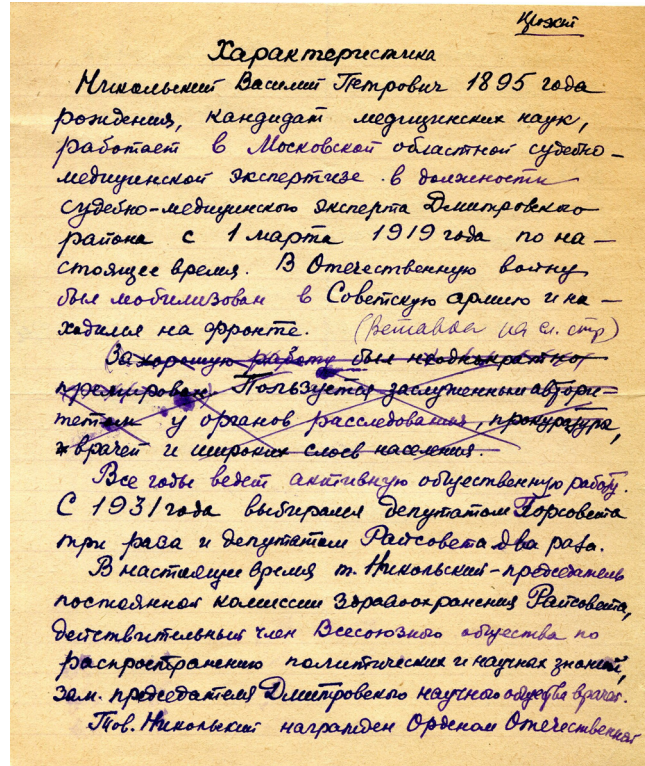 Характеристика
Никольский Василий Петрович 1895 года
рождения, кандидат медицинских наук,
работает в Московской областной судебно-
медицинской экспертизе в должности
судебно-медицинского эксперта Дмитровского
района с 1 марта 1919 года по на-
стоящее время. В Отечественную войну
был мобилизован в Советскую армию и на-
ходился на фронте. (Вставка на сл. стр)
(За хорошую работу был неоднократно
премирован. Пользуется заслуженным автори-
тетом у органов расследования, прокуратура,
врачей и широких слоев населения.
Все годы ведет активную общественную работу.
С 1931 года выбирался депутатом Горсовета
три раза и депутатом Райсовета два раза.
В настоящее время т. Никольский - председатель
постоянной комиссии Здравоохранения Райсовета,
действительный член Всесоюзного общества по
распространению политических и научных знаний,
зам. председателя Дмитровского научного общества врачей.
Тов. Никольский награжден Орденом Отечественной